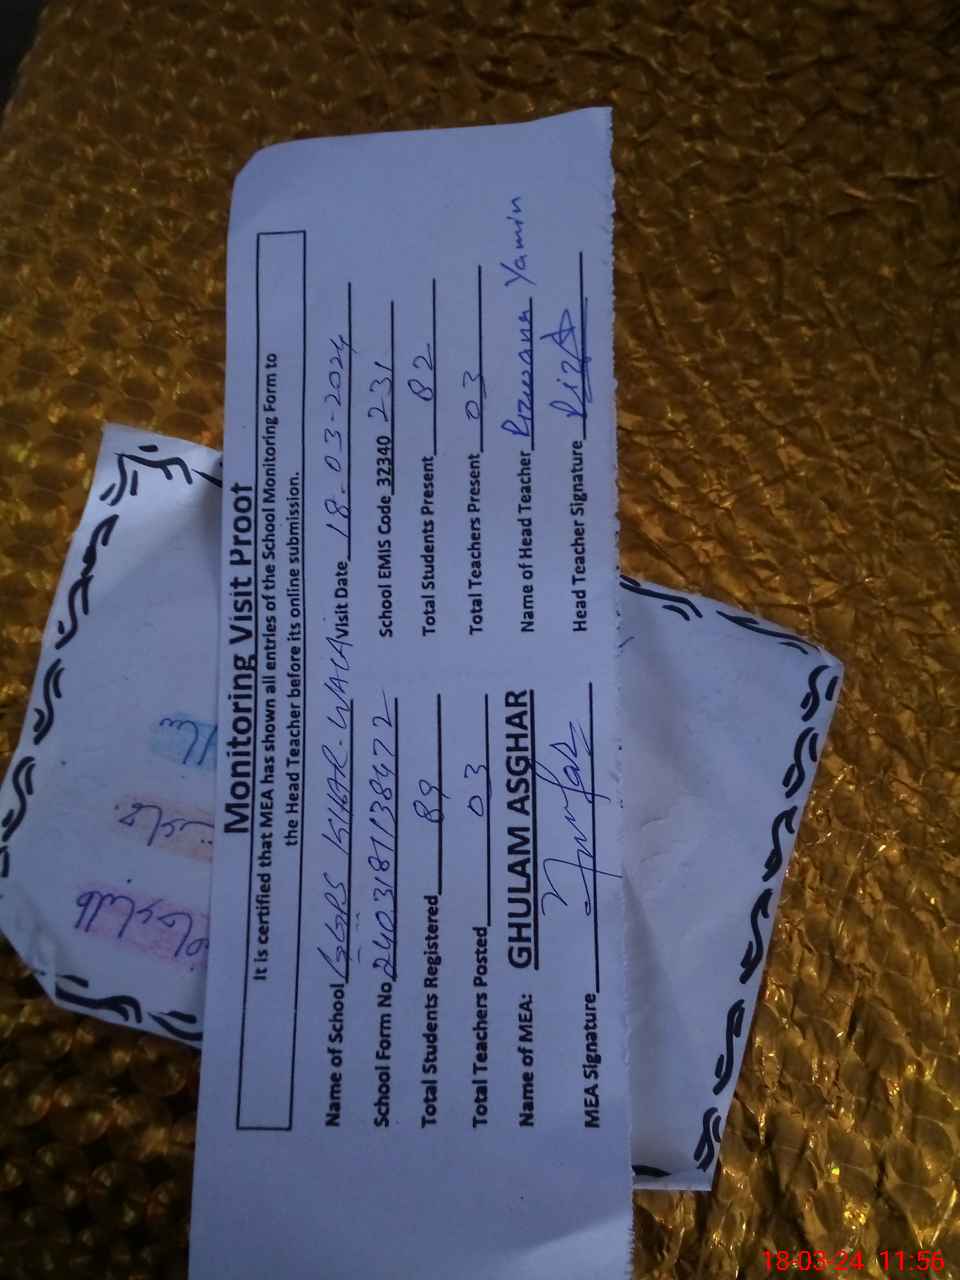 Monitoring Visit Proof
It is certified that MEA has shown all entries of the School Monitoring Form to
the Head Teacher before its online submission.
Name of School GGPS KHAR-WALA Visit Date 18-03-2024
School Form No 2403181138472 School EMIS Code 32340 231
Total Students Registered 89 Total Students Present 82
Total Teachers Posted 03 Total Teachers Present 03
Name of MEA: GHULAM ASGHAR Name of Head Teacher Rizwana Yamin
MEA Signature Head Teacher Signature
18-03-24 11:56